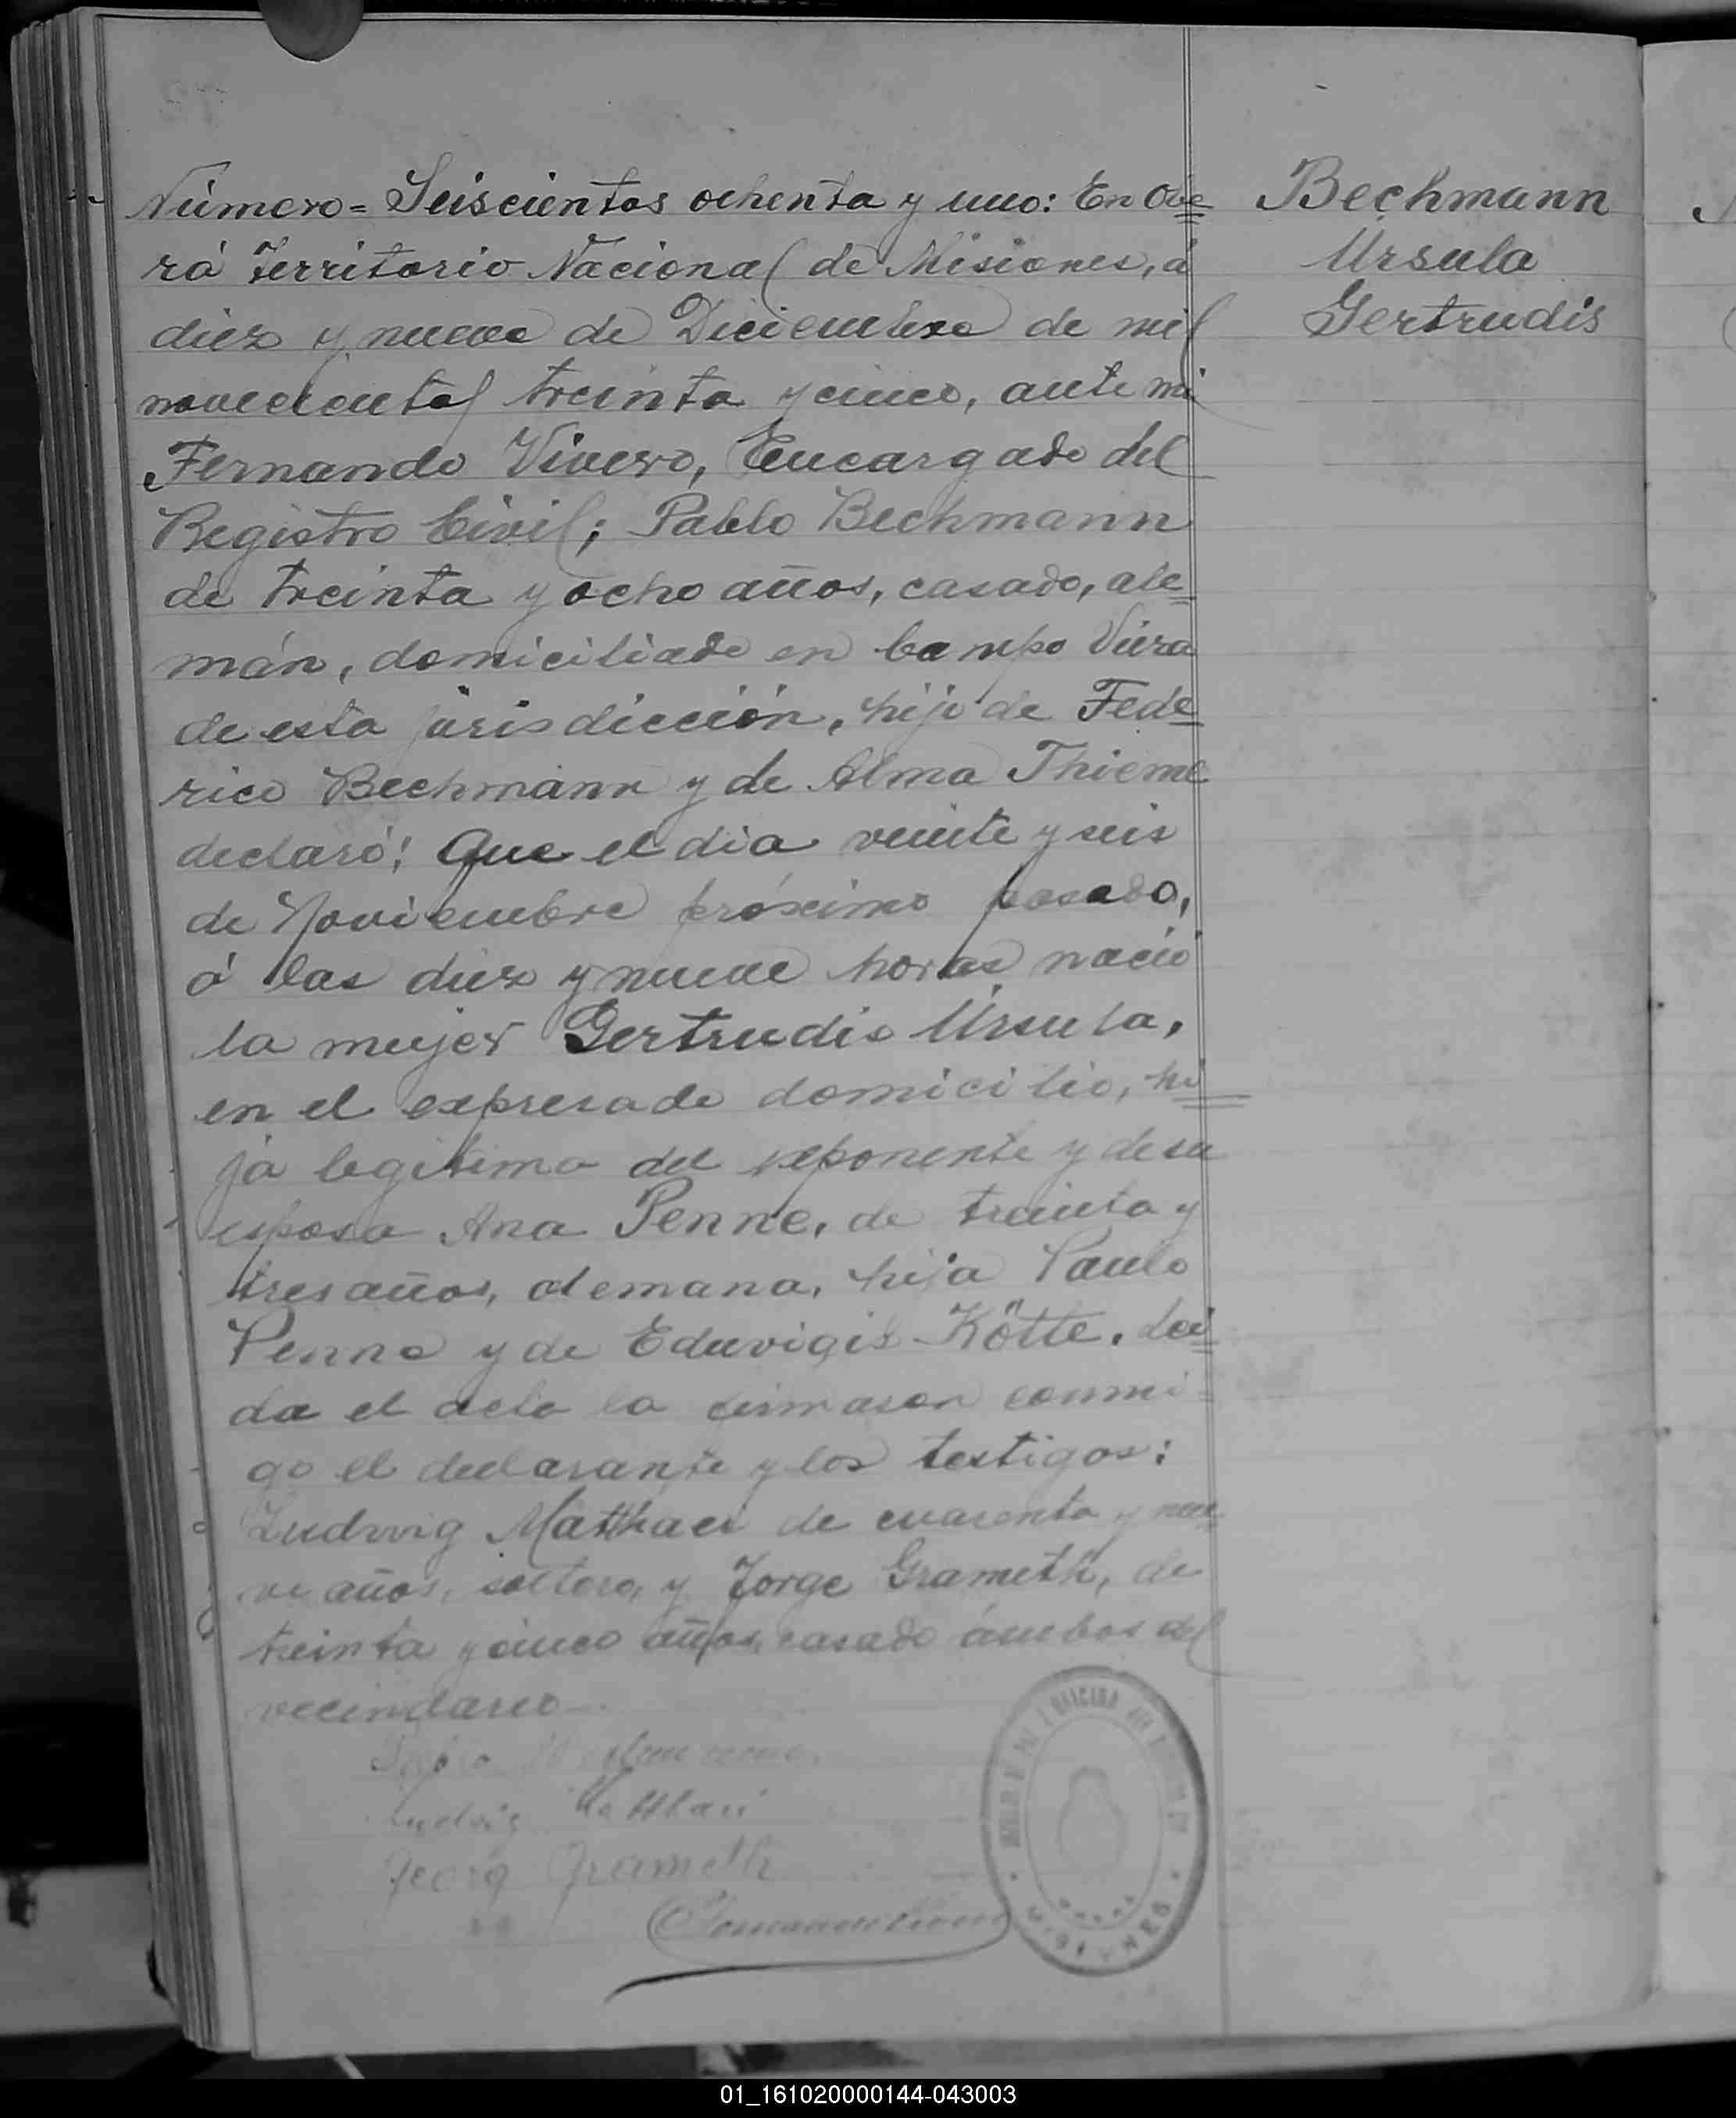 Número = Seiscientos ochenta y uno: En Obe=
rá Territorio Nacional de Misiones, á
diez y nueve de Diciembre de mil
novecientos treinta y cinco, ante mi
Fernando Vivero, Encargado del
Registro Civil; Pablo Bechmann
de treinta y ocho años, casado, ale=
mán, domiciliado en Campo Viera
de esta jurisdicción, hijo de Fede=
rico Bechmann y de Alma Thieme
declaró: Que el dia veinte y seis
de Noviembre próximo pasado,
á las diez y nueve horas nació
la mujer Gertrudis Ursula,
en el expresado domicilio, hi=
ja legitima del exponente y de su
esposa Ana Penne, de treinta y
tres años, alemana, hija Paulo
Penne y de Eduvigis Kötte. Lei=
da el acta la firmaron conmi=
go el declarante y los testigos:
Ludwig Matthaei de cuarenta y nue=
ve años, soltero, y Jorge Grameth, de
treinta y cinco años, casado ámbos del
vecindario.
Ludwig Matthaei
Georg Grameth
OFICINA DEL
MISIONES
Bechmann
Ursula
Gertrudis
01_161020000144-043003